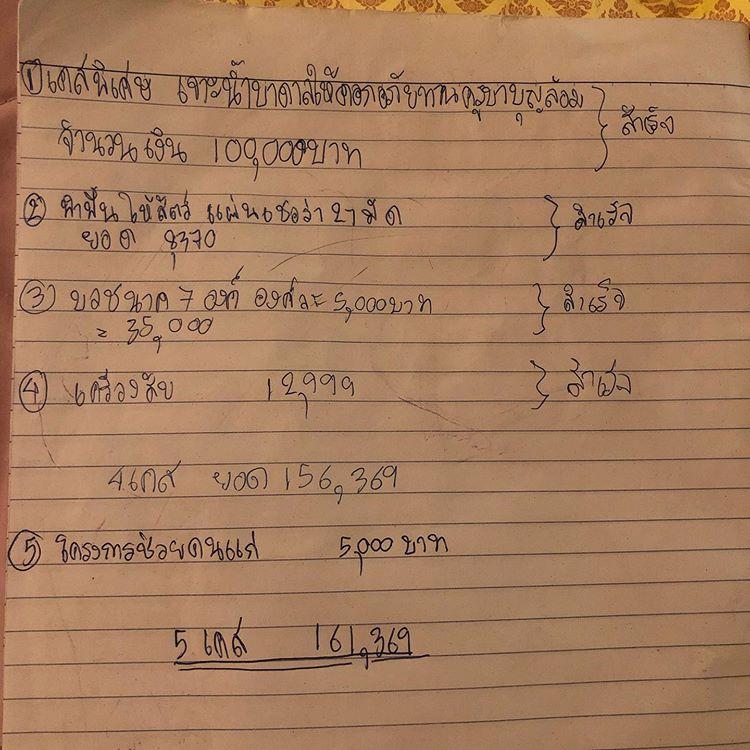 ① เคสพิเศษ เจาะน้ำบาดาลให้คอกอภัยทานครูบาบุญล้อม
จำนวนเงิน 100,000บาท
สำเร็จ
② ให้สัตว์ 27 มัด
ยอด 8,370
สำเร็จ
③ บวชนาค 7 องค์ องค์ละ 5,000บาท
= 35,000
สำเร็จ
④ เครื่องสับ 12,999
สำเร็จ
4เคส ยอด 156,369
⑤ โครงการช่วยคนแก่ 5,000 บาท
5 เคส 161,369